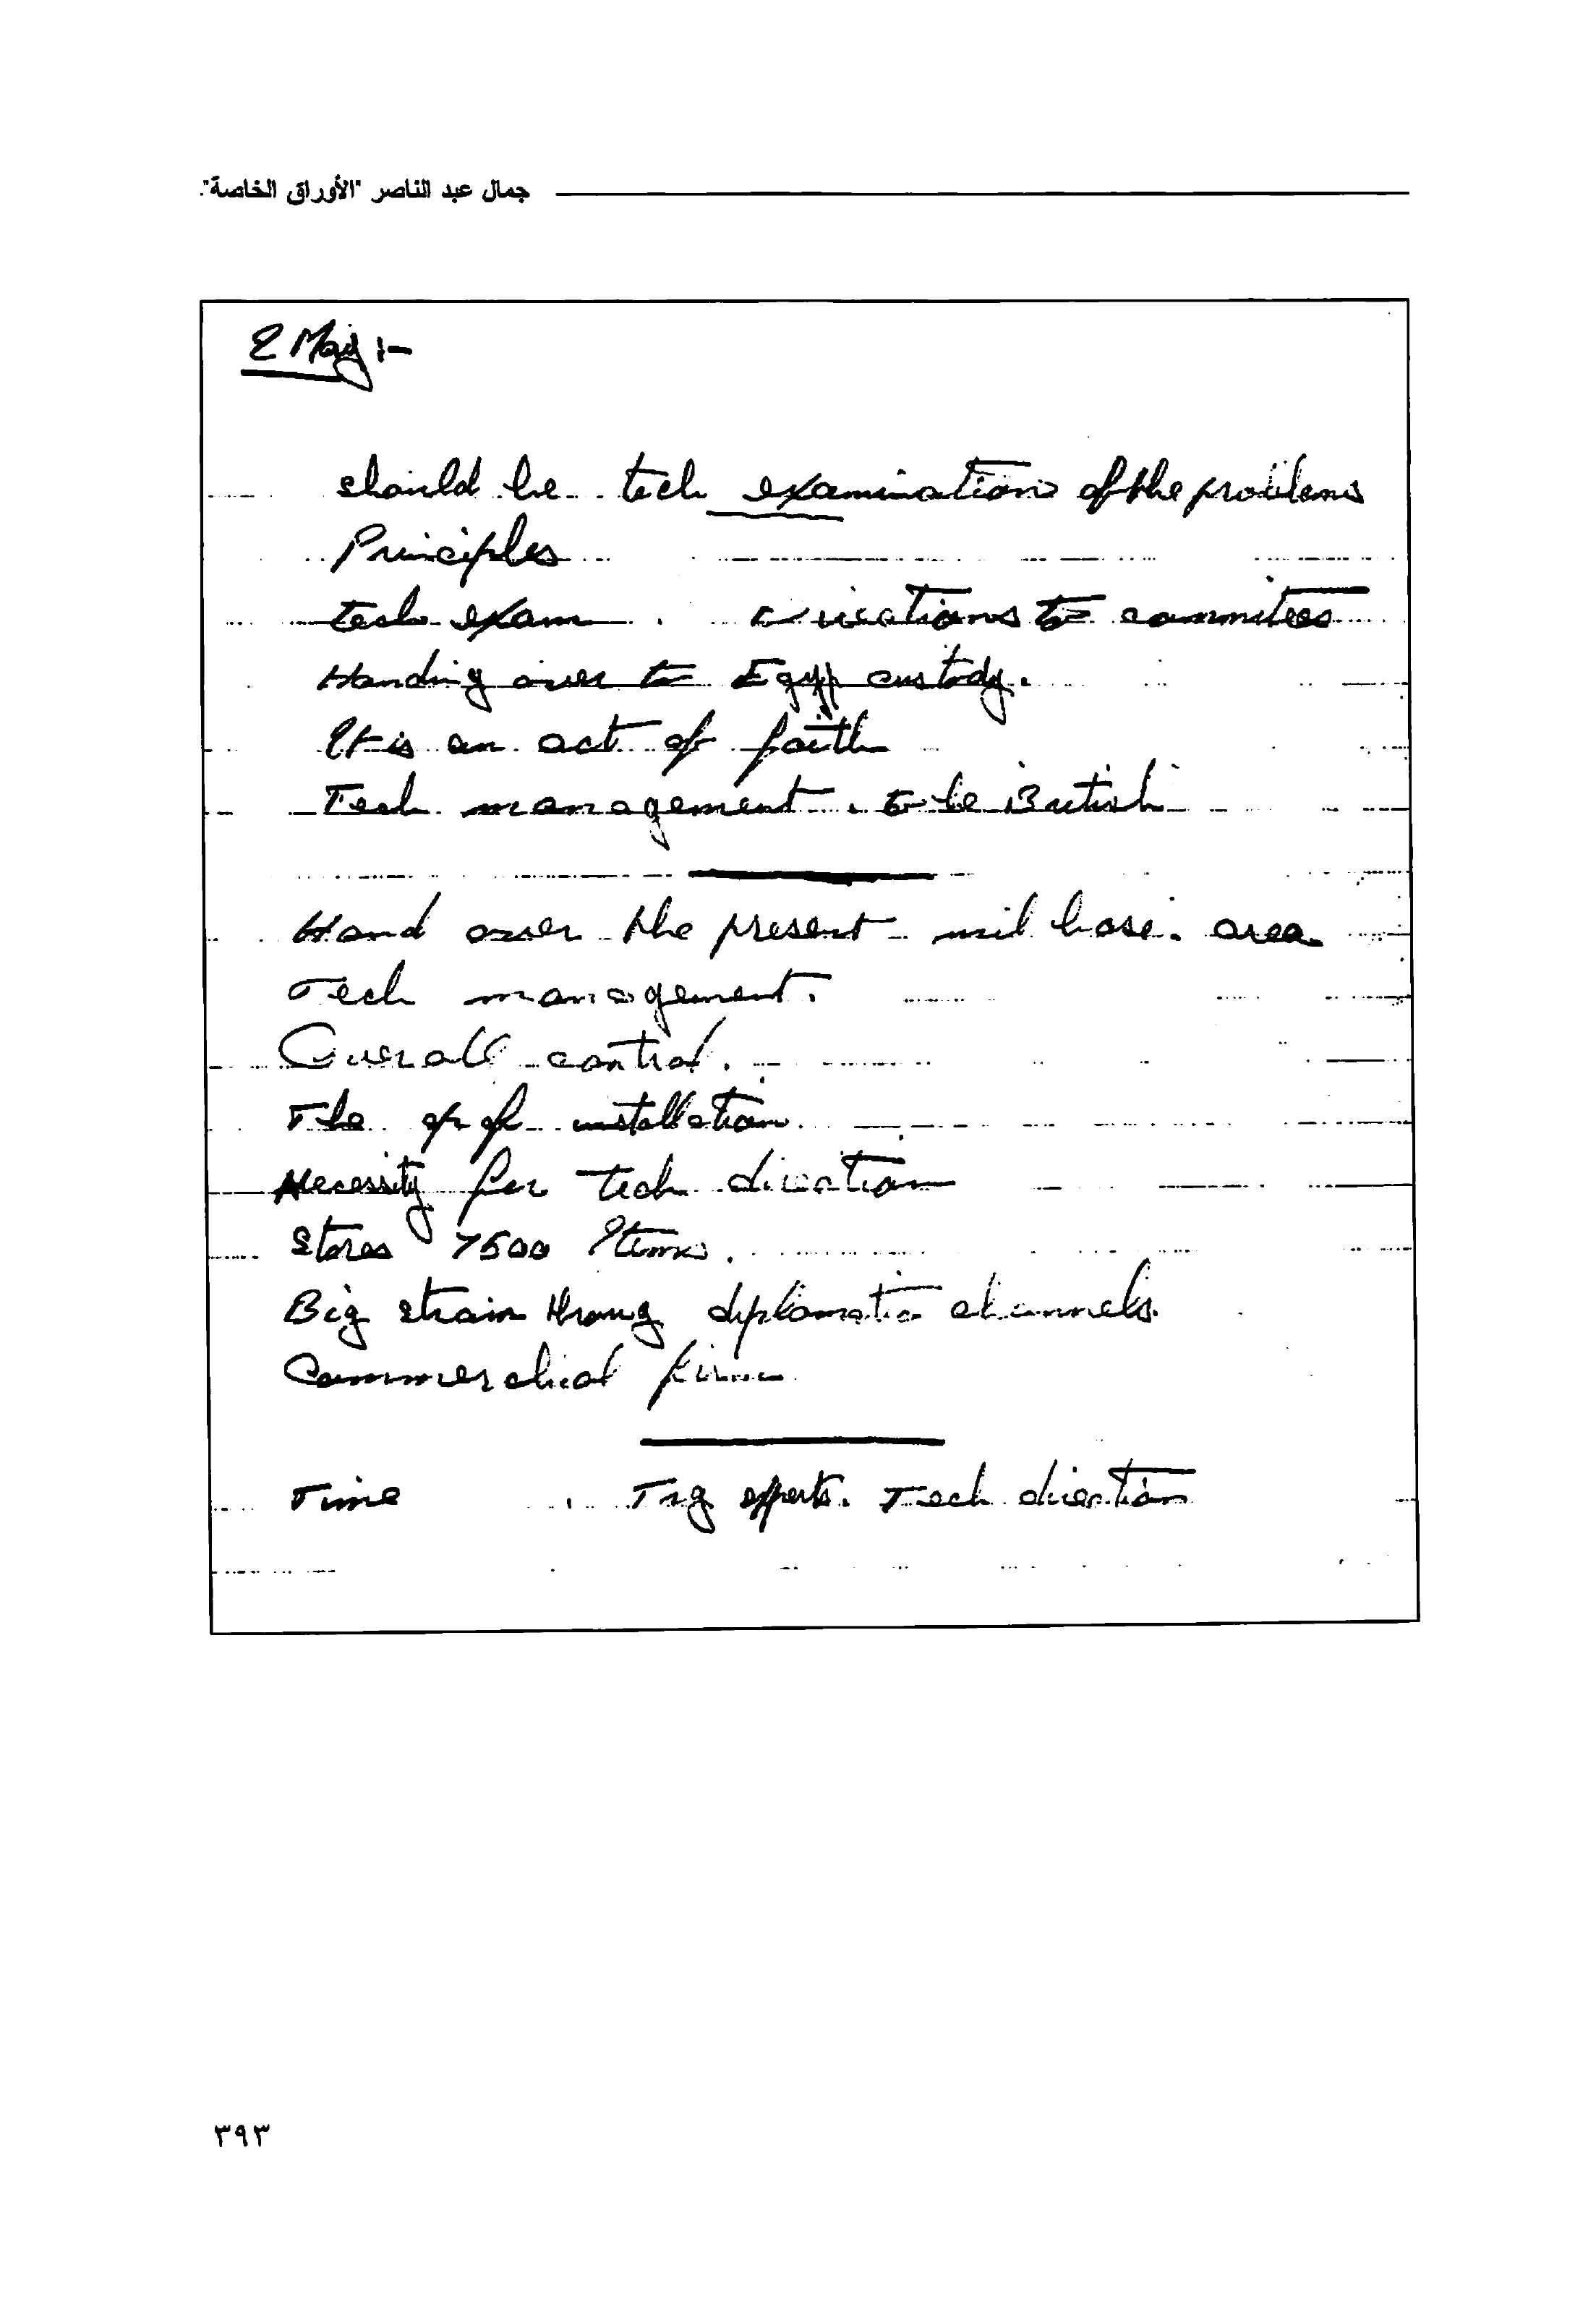 جمال عبد الناصر "الأوراق الخاصة".
2 May :-
should be tech examinations of the problems
Principles
tech exam . to commitees
Handing over to Egyp custody.
It is an act of faith
Tech management . to be British
Hand over the present mil base. area.
Tech management.
Overall control.
The of installation.
Necessity for tech direction
Stores 7500 Items.
Big strain throug diplomatic channels.
Commerchial firm
Time . Trg experts. Tech direction
٣٩٣